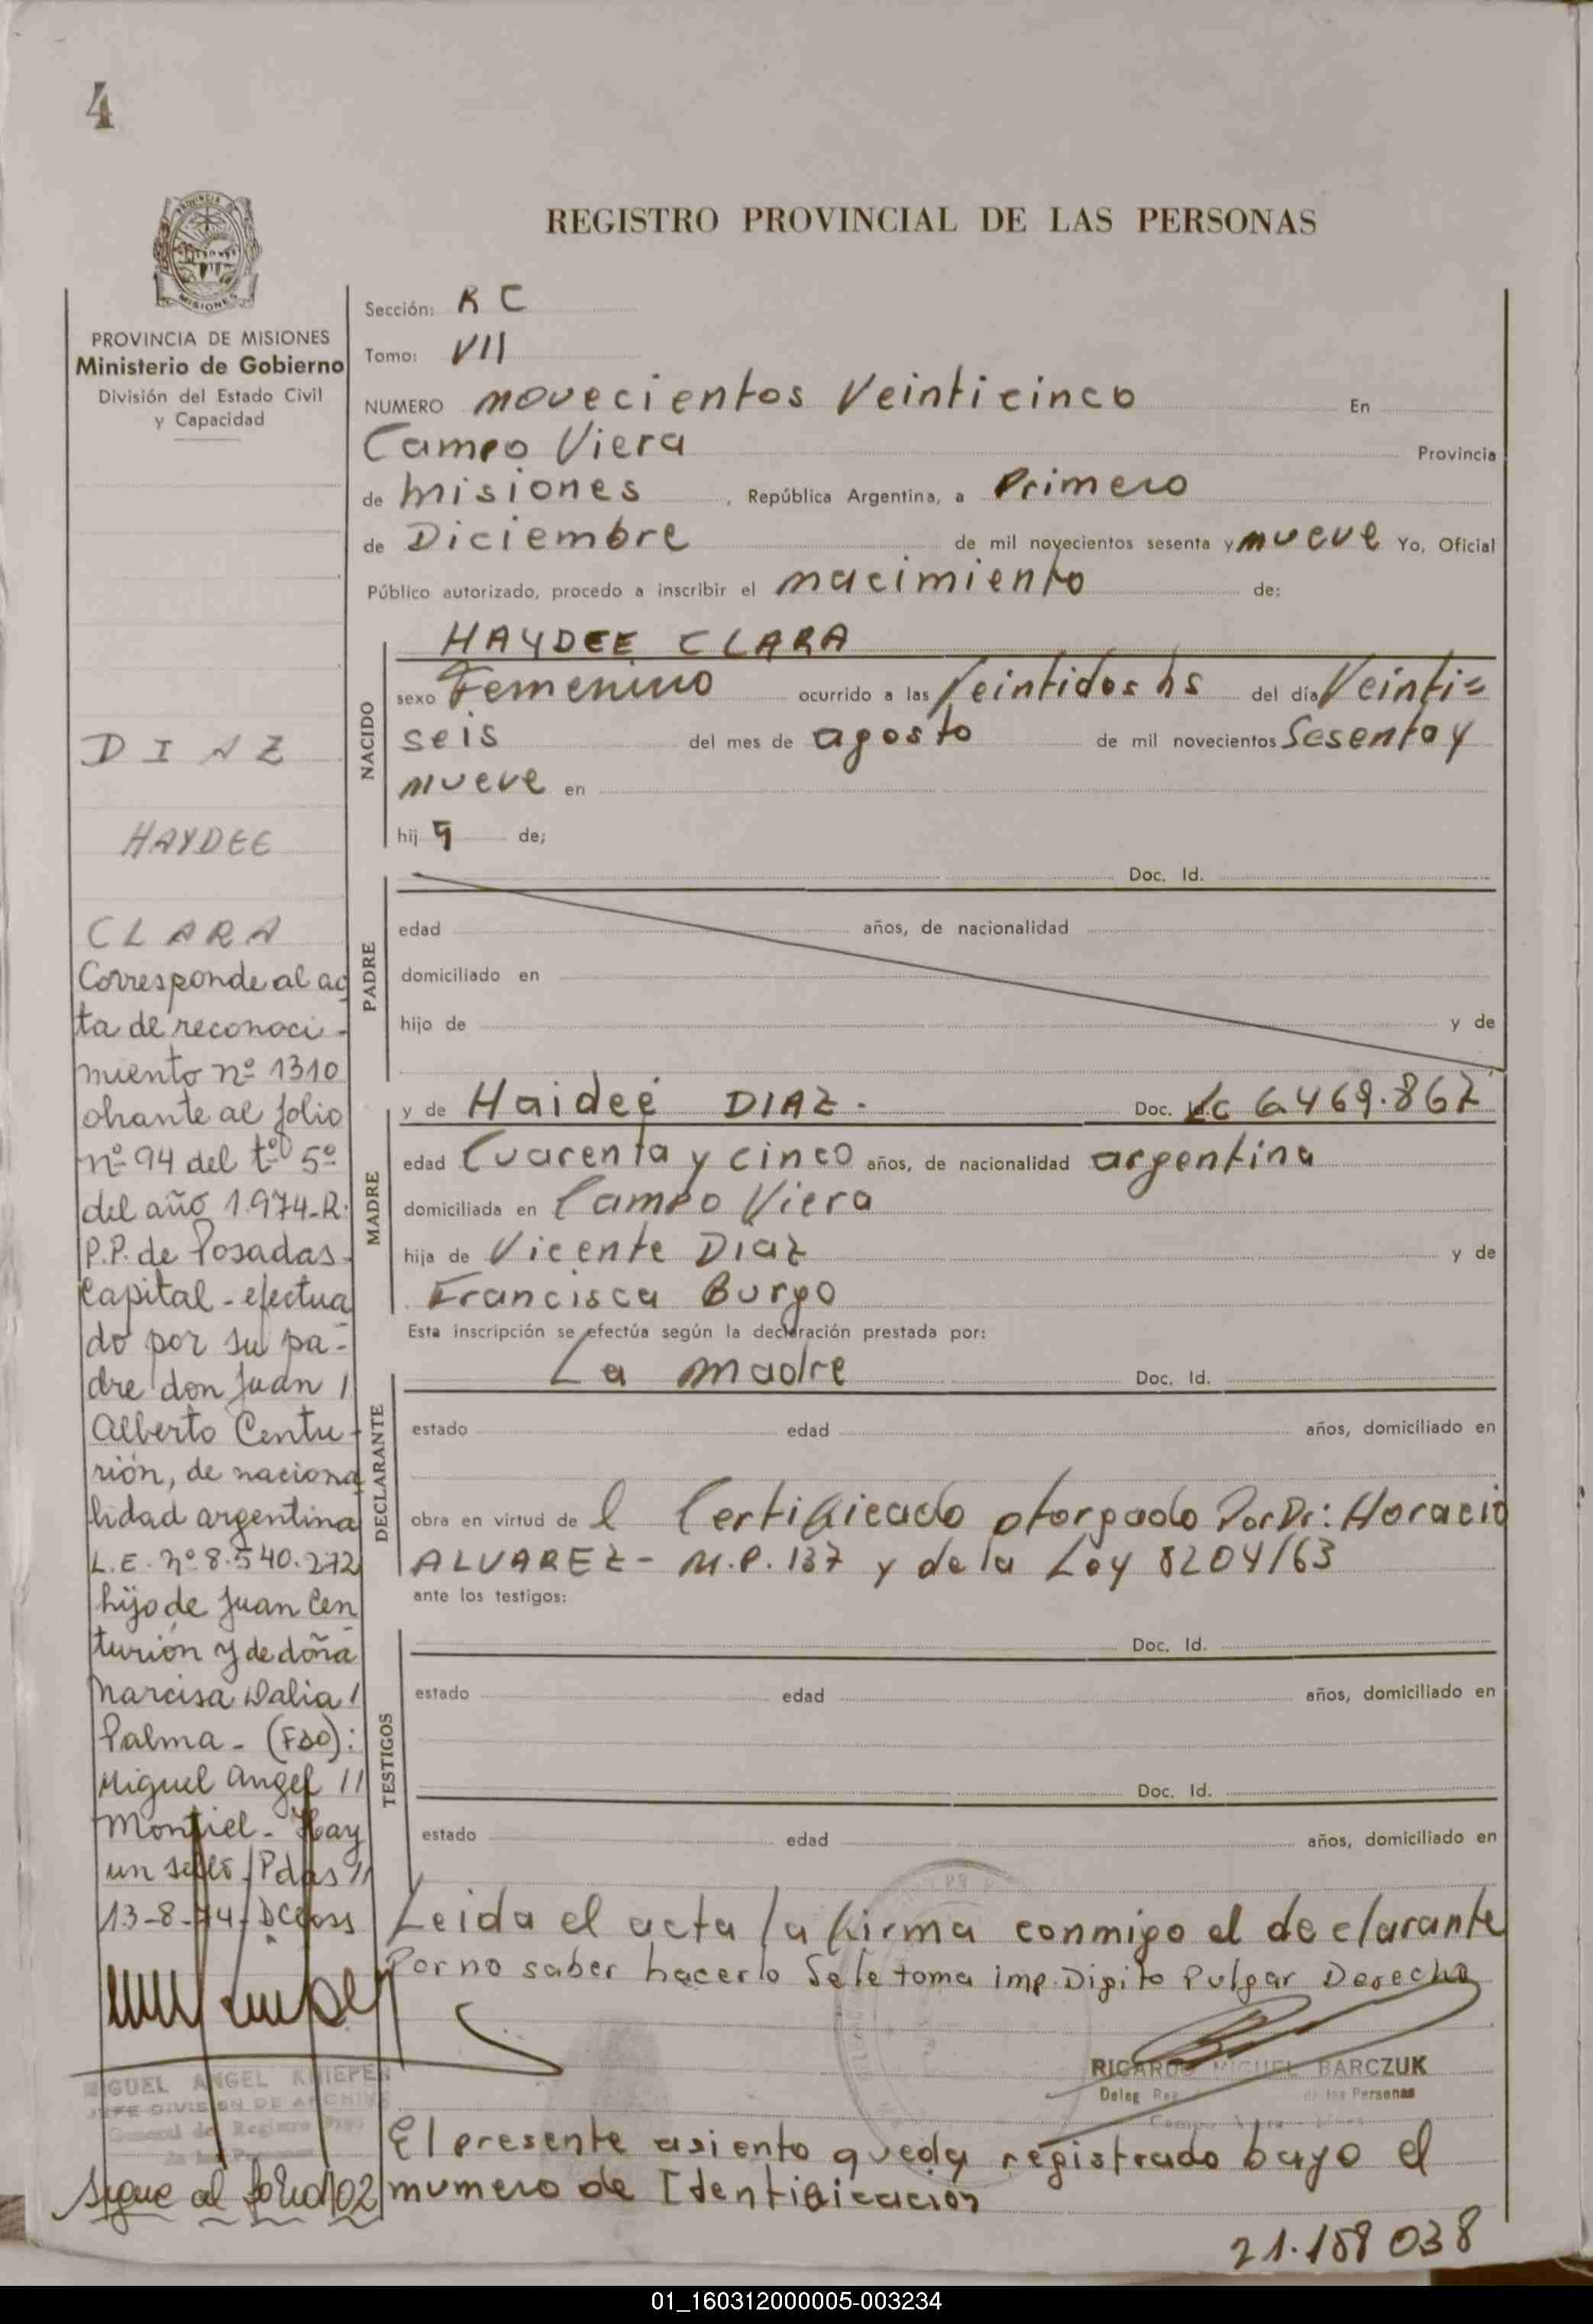 4
REGISTRO PROVINCIAL DE LAS PERSONAS
PROVINCIA DE MISIONES
Ministerio de Gobierno
División del Estado Civil
y Capacidad
DIAZ
HAYDEE
CLARA
Corresponde al ac
ta de reconoci-
miento nº 1310
obrante al folio
nº 94 del tº 5º
del año 1.974-R.
P.P. de Posadas-
Capital - efectua
do por su pa-
dre don Juan /
Alberto Centu-
rión, de naciona
lidad argentina
L.E. nº 8.540.272
hijo de Juan Cen
turión y de doña
Narcisa Dalia /
Palma - (FDO):
Miguel Angel //
Montiel - Hay
un sello - Pdas //
13-8-74-
MIGUEL ANGEL KNIEPER
JEFE DIVISION DE ARCHIVO
General del Registro Prov.
de las Personas
Sigue al folio 102
Sección: RC
Tomo: VII
NUMERO novecientos Veinticinco En
Campo Viera Provincia
de misiones, República Argentina, a Primero
de Diciembre de mil novecientos sesenta y nueve Yo, Oficial
Público autorizado, procedo a inscribir el nacimiento de:
NACIDO
HAYDEE CLARA
sexo Femenino ocurrido a las Veintidos hs del día Veinti=
seis del mes de agosto de mil novecientos Sesenta y
nueve en
hij a de;
PADRE
Doc. Id.
edad años, de nacionalidad
domiciliado en
hijo de y de
MADRE
y de Haideé DIAZ. Doc. Id. Lc 6.469.867
edad Cuarenta y cinco años, de nacionalidad argentina
domiciliada en Campo Viera
hija de Vicente Diaz y de
Francisca Burgo
Esta inscripción se efectúa según la declaración prestada por:
DECLARANTE
La madre Doc. Id.
estado edad años, domiciliado en
obra en virtud de l Certificado otorgado Por Dr: Horacio
ALVAREZ - M.P. 137 y de la Ley 8204/63
ante los testigos:
TESTIGOS
Doc. Id.
estado edad años, domiciliado en
Doc. Id.
estado edad años, domiciliado en
Leida el acta la firma conmigo el declarante
Por no saber hacerlo Se le toma imp. Digito Pulgar Derecho
RICARDO MIGUEL BARCZUK
Deleg Reg de las Personas
El presente asiento queda registrado bajo el
numero de Identificacion
21.159 038
01_160312000005-003234